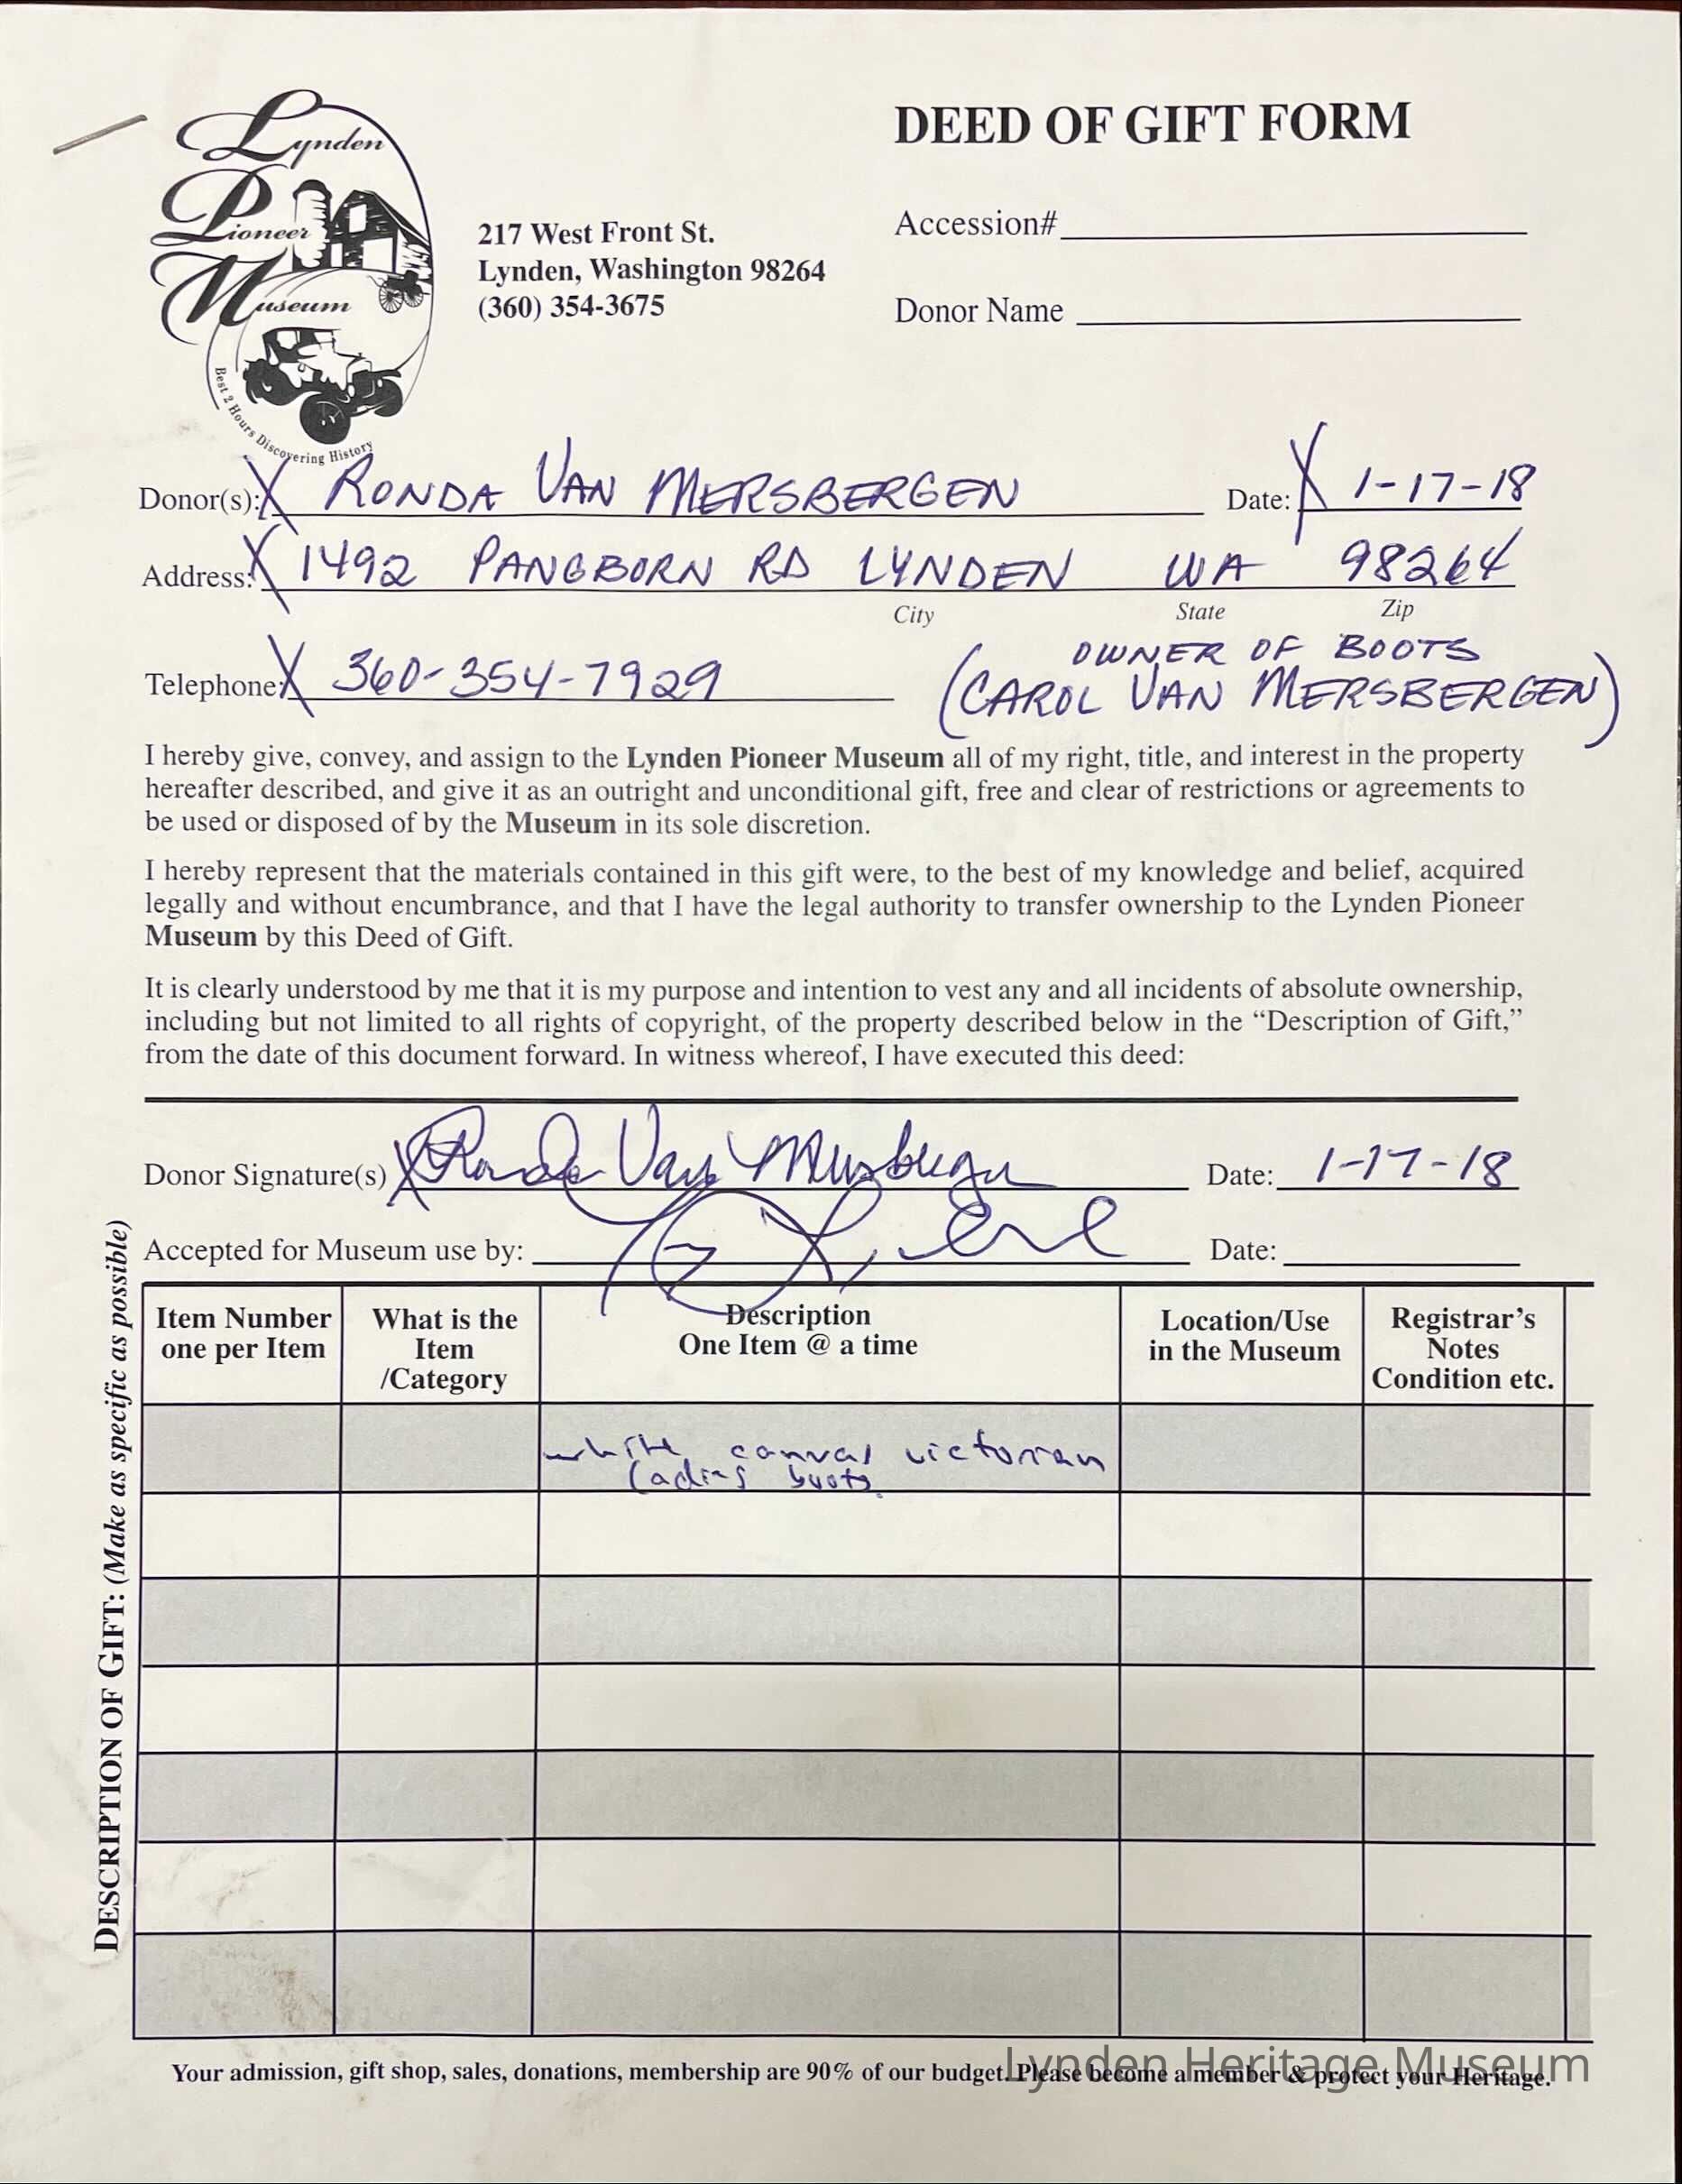 Lynden
Pioneer
Museum
Best 2 Hours Discovering History
217 West Front St.
Lynden, Washington 98264
(360) 354-3675
DEED OF GIFT FORM
Accession#
Donor Name
Donor(s): X RONDA VAN MERSBERGEN Date: X 1-17-18
Address: X 1492 PANGBORN RD LYNDEN WA 98264
City State Zip
Telephone: X 360-354-7929
OWNER OF BOOTS
(CAROL VAN MERSBERGEN)
I hereby give, convey, and assign to the Lynden Pioneer Museum all of my right, title, and interest in the property
hereafter described, and give it as an outright and unconditional gift, free and clear of restrictions or agreements to
be used or disposed of by the Museum in its sole discretion.
I hereby represent that the materials contained in this gift were, to the best of my knowledge and belief, acquired
legally and without encumbrance, and that I have the legal authority to transfer ownership to the Lynden Pioneer
Museum by this Deed of Gift.
It is clearly understood by me that it is my purpose and intention to vest any and all incidents of absolute ownership,
including but not limited to all rights of copyright, of the property described below in the “Description of Gift,”
from the date of this document forward. In witness whereof, I have executed this deed:
Donor Signature(s) X Ronda Van Mersbergen Date: 1-17-18
Accepted for Museum use by: Date:
DESCRIPTION OF GIFT: (Make as specific as possible)
Item Number What is the Description Location/Use Registrar’s
one per Item Item One Item @ a time in the Museum Notes
/Category Condition etc.
white canvas victorian
ladies boots.
Your admission, gift shop, sales, donations, membership are 90% of our budget. Please become a member & protect your Heritage.
Lynden Heritage Museum